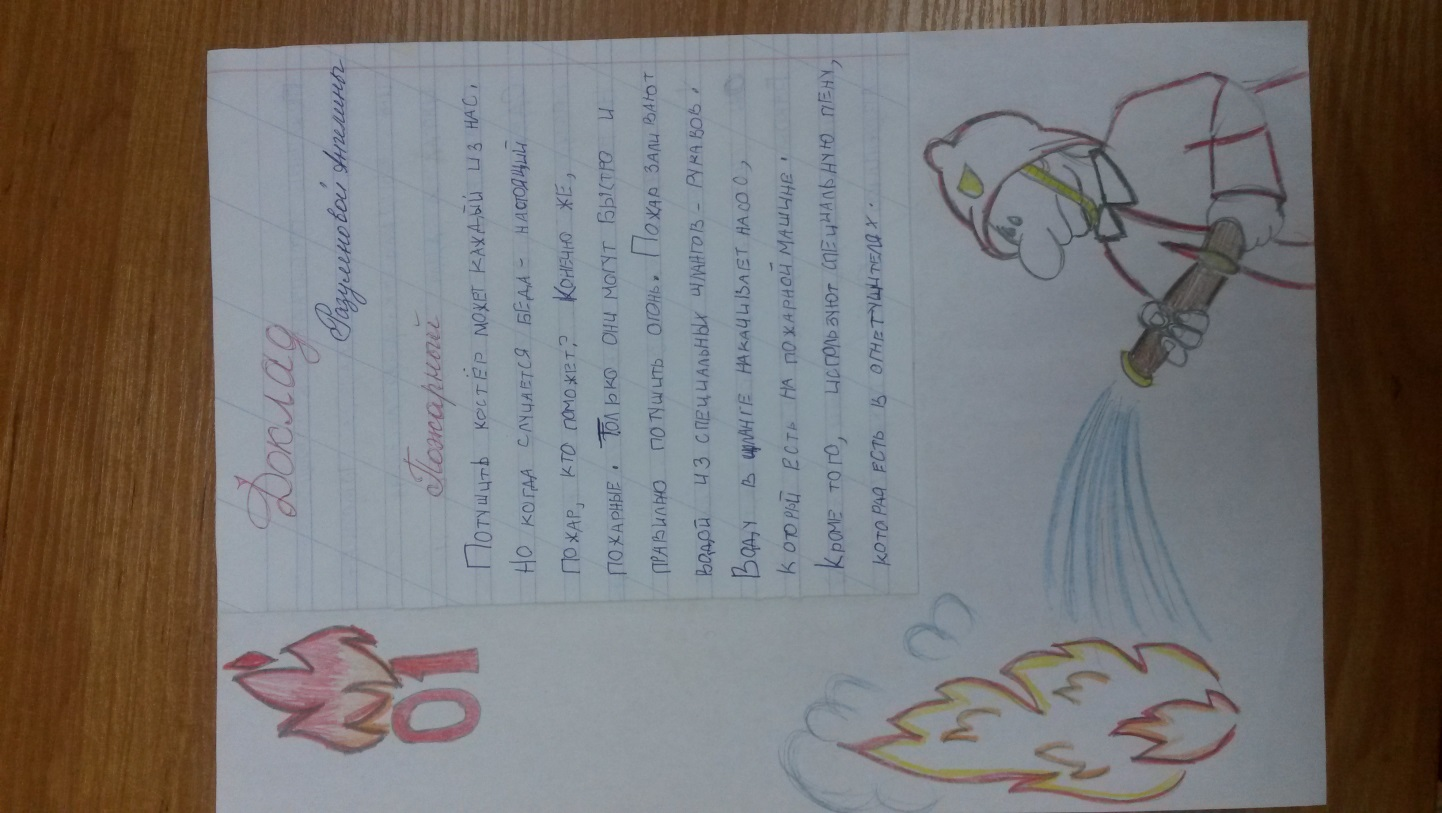 Доклад
Разумновой Ангелины
Пожарный
ПОТУШИТЬ КОСТЁР МОЖЕТ КАЖДЫЙ ИЗ НАС,
НО КОГДА СЛУЧАЕТСЯ БЕДА - НАСТОЯЩИЙ
ПОЖАР, КТО ПОМОЖЕТ? КОНЕЧНО ЖЕ,
ПОЖАРНЫЕ. ТОЛЬКО ОНИ МОГУТ БЫСТРО И
ПРАВИЛЬНО ПОТУШИТЬ ОГОНЬ. ПОЖАР ЗАЛИВАЮТ
ВОДОЙ ИЗ СПЕЦИАЛЬНЫХ ШЛАНГОВ - РУКАВОВ.
ВОДУ В ШЛАНГЕ НАКАЧИВАЕТ НАСОС,
КОТОРЫЙ ЕСТЬ НА ПОЖАРНОЙ МАШИНЕ.
КРОМЕ ТОГО, ИСПОЛЬЗУЮТ СПЕЦИАЛЬНУЮ ПЕНУ,
КОТОРАЯ ЕСТЬ В ОГНЕТУШИТЕЛЯХ.
01